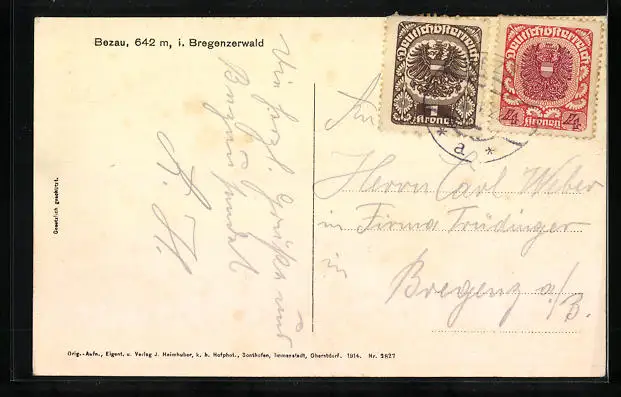 Bezau, 642 m, i. Bregenzerwald
Deutschösterreich
1
Kronen
Deutschösterreich
4 4
Kronen
* a *
Gesetzlich geschützt.
Viel herzl. Grüße und
H.
An
Herrn Carl Weber
in Firma Trüdinger
in
Bregenz a/B.
Orig.-Aufn., Eigent. u. Verlag J. Heimhuber, k. b. Hofphot., Sonthofen, Immenstadt, Oberstdorf. 1914. Nr. 2827